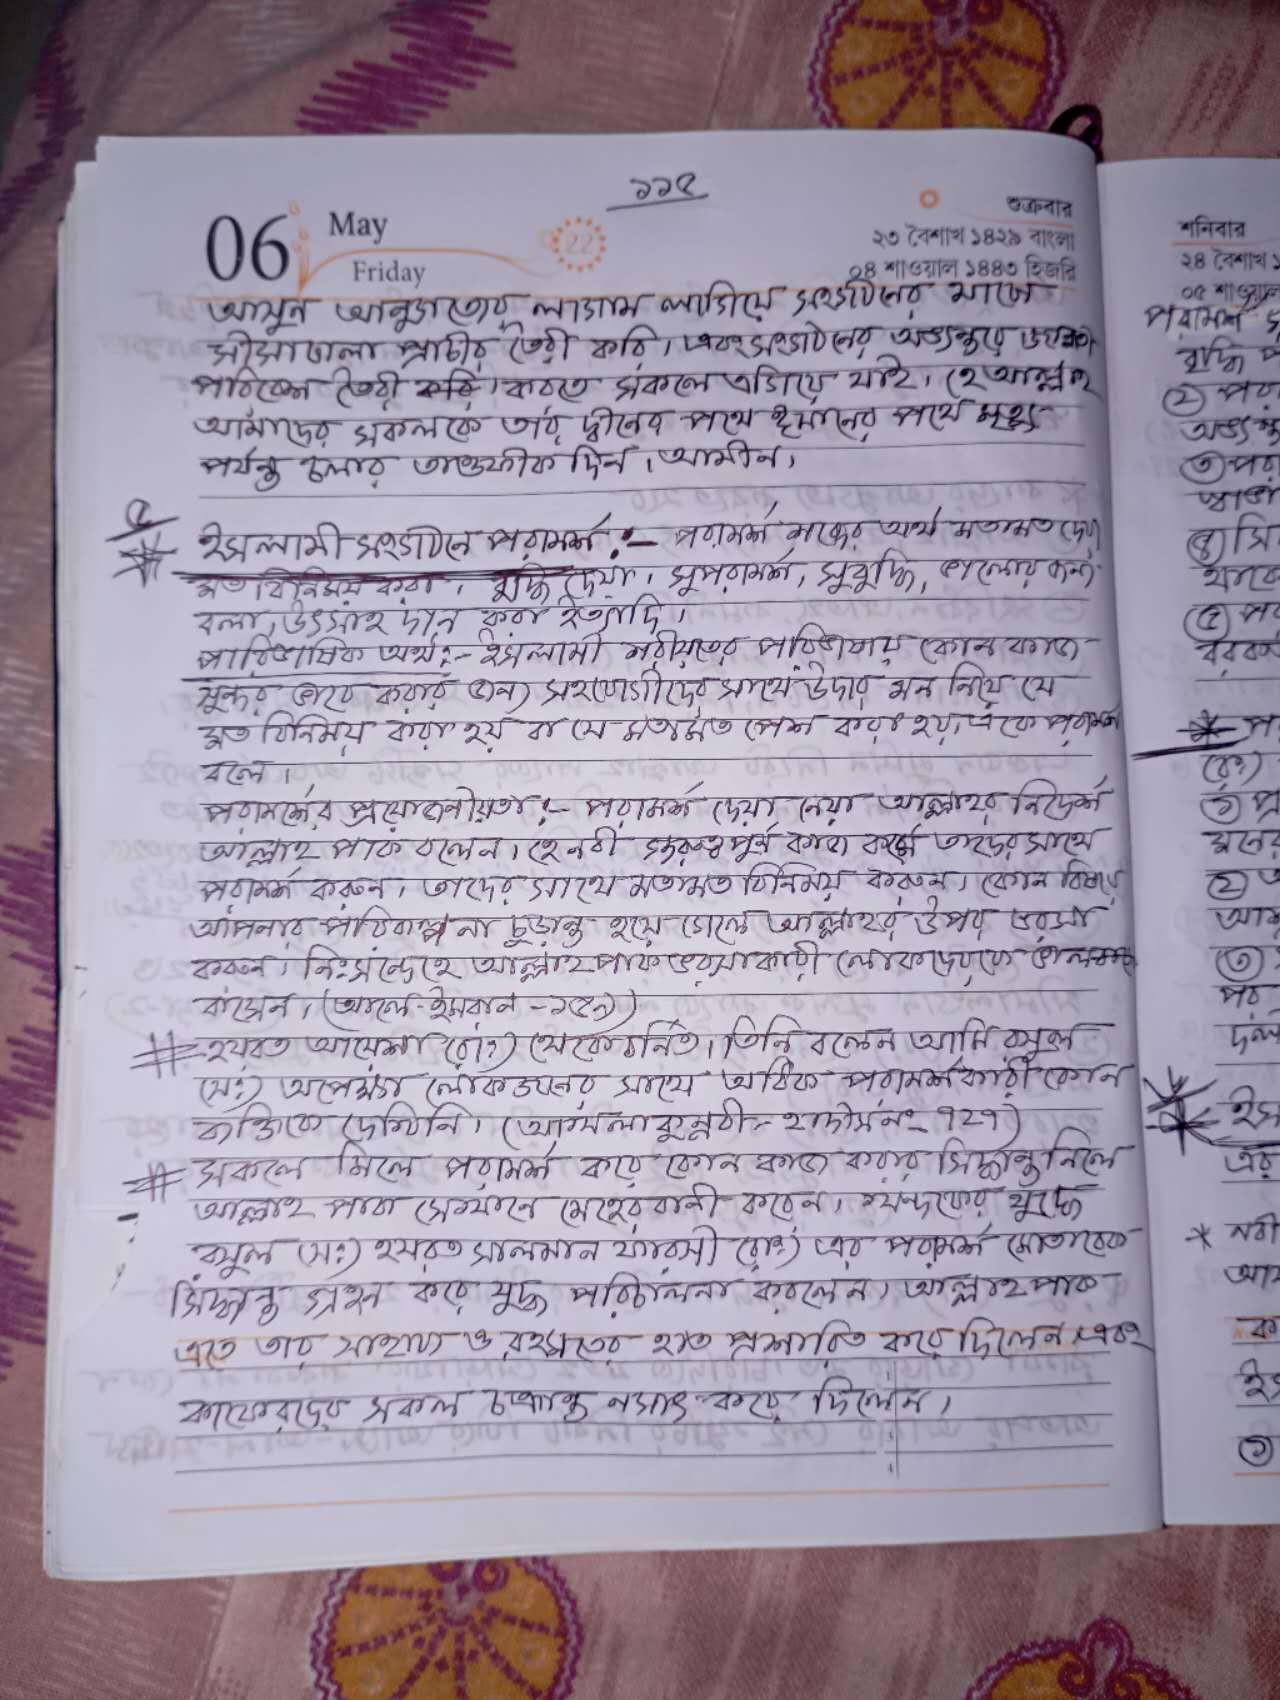 ১১৫
06 May
Friday
22
শুক্রবার
২৩ বৈশাখ ১৪২৯ বাংলা
০৪ শাওয়াল ১৪৪৩ হিজরি
আসুন আনুগত্যের লাগাম লাগিয়ে সংগঠনের মাঝে
সীসাঢালা প্রাচীর তৈরী করি। এবং সংগঠনের অভ্যন্তরে
পরিবেশ তৈরী করি। করতে সকলে এগিয়ে যাই। হে আল্লাহ
আমাদের সকলকে তার দ্বীনের পথে ঈমানের পথে মৃত্যু
পর্যন্ত চলার তাওফীক দিন। আমীন।
৫
* ইসলামী সংগঠনে পরামর্শ :- পরামর্শ শব্দের অর্থ মতামত দেয়া
মত বিনিময় করা। বুদ্ধি দেয়া। সুপরামর্শ, সুবুদ্ধি, ভালোর জন্য
বলা, উৎসাহ দান করা ইত্যাদি।
পারিভাষিক অর্থ:- ইসলামী শরীয়তের পরিভাষায় কোন কাজ
সুন্দর ভাবে করার জন্য সহযোগীদের সাথে উদার মন নিয়ে যে
মত বিনিময় করা হয় বা যে মতামত পেশ করা হয়, একে পরামর্শ
বলে।
পরামর্শের প্রয়োজনীয়তা :- পরামর্শ দেয়া নেয়া আল্লাহর নির্দেশ
আল্লাহ পাক বলেন। হে নবী গুরুত্বপুর্ন কাজ কর্মে তাদের সাথে
পরামর্শ করুন। তাদের সাথে মতামত বিনিময় করুন। কোন বিষয়ে
আপনার পরিকল্পনা চুড়ান্ত হয়ে গেলে আল্লাহর উপর ভরসা
করুন। নিঃসন্দেহে আল্লাহ পাক ভরসাকারী লোকদেরকে
বাসেন। (আলে-ইমরান -১৫৯)
# হযরত আয়েশা (রাঃ) থেকে বর্নিত। তিনি বলেন আমি রসুল
(সঃ) অপেক্ষা লোকজনের সাথে অধিক পরামর্শকারী কোন
ব্যক্তিকে দেখিনি। (আখলাকুন্নবী- হাদীস নং- ৭২৭)
# সকলে মিলে পরামর্শ করে কোন কাজ করার সিদ্ধান্ত নিলে
আল্লাহ পাক সেখানে মেহেরবানী করেন। খন্দকের যুদ্ধে
রসুল (সঃ) হযরত সালমান ফারসী (রাঃ) এর পরামর্শ মোতাবেক
সিদ্ধান্ত গ্রহন করে যুদ্ধ পরিচালনা করলেন। আল্লাহ পাক
এতে তার সাহায্য ও রহমতের হাত প্রশারিত করে দিলেন এবং
কাফেরদের সকল চক্রান্ত নসাৎ করে দিলেন।
শনিবার
২৪ বৈশাখ
০৫ শাওয়াল
পরামর্শ
বৃদ্ধি
②
③
④
থাকে
⑤
* 
(রঃ)
①
মনের
②
③
পর
* নবী
①